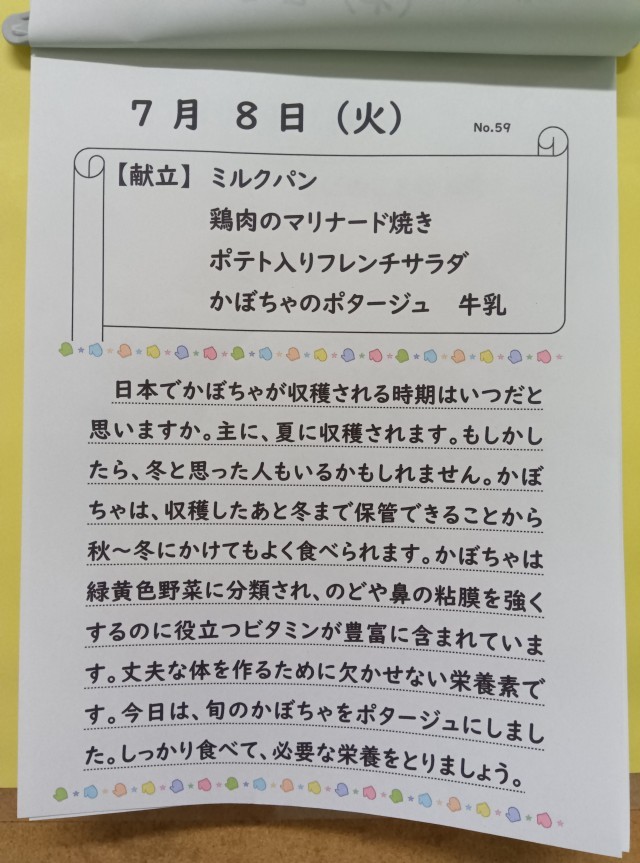 7月 8日（火）
No.59
【献立】 ミルクパン
鶏肉のマリナード焼き
ポテト入りフレンチサラダ
かぼちゃのポタージュ 牛乳
日本でかぼちゃが収穫される時期はいつだと
思いますか。主に、夏に収穫されます。もしかし
たら、冬と思った人もいるかもしれません。かぼ
ちゃは、収穫したあと冬まで保管できることから
秋～冬にかけてもよく食べられます。かぼちゃは
緑黄色野菜に分類され、のどや鼻の粘膜を強く
するのに役立つビタミンが豊富に含まれていま
す。丈夫な体を作るために欠かせない栄養素で
す。今日は、旬のかぼちゃをポタージュにしまし
た。しっかり食べて、必要な栄養をとりましょう。